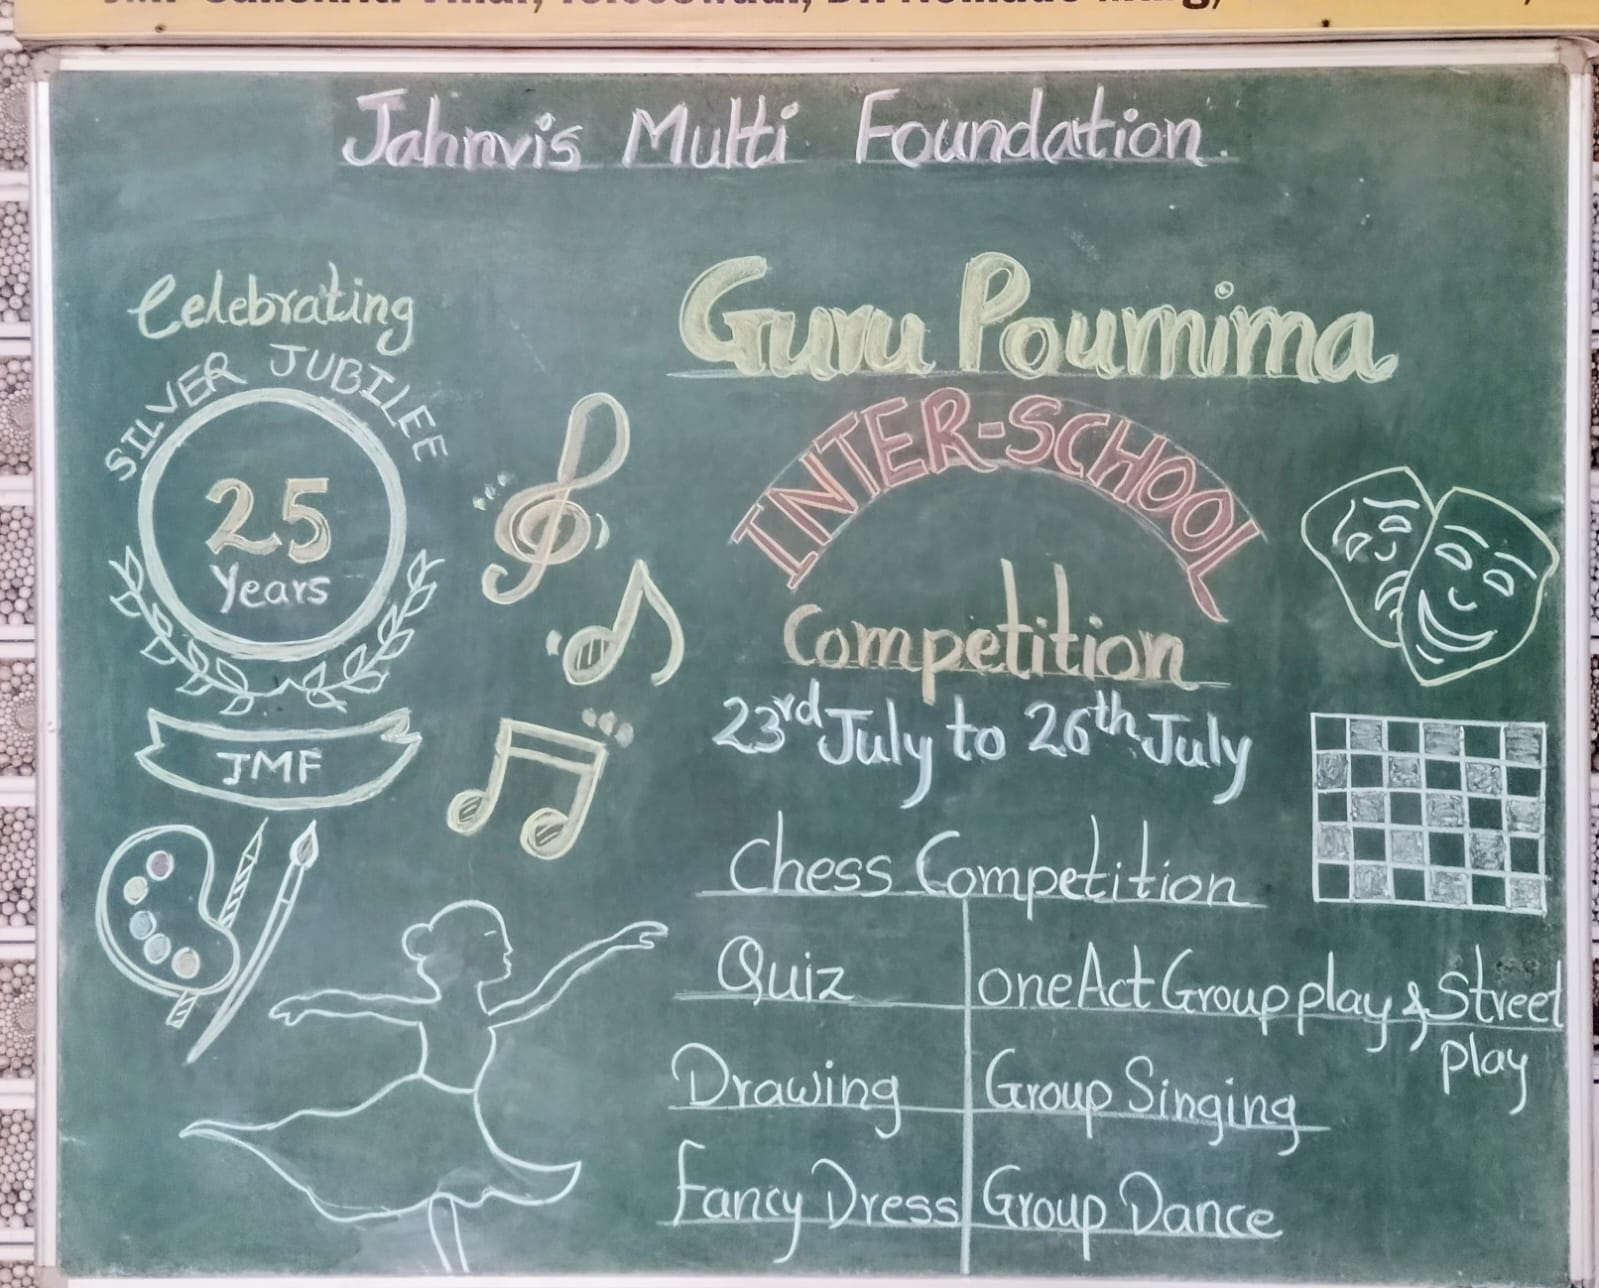 Jahnvis Multi Foundation.
Celebrating
SILVER JUBILEE
25
Years
JMF
Guru Pournima
INTER-SCHOOL
Competition
23rd July to 26th July
Chess Competition
Quiz
one Act Group play & Street play
Drawing
Group Singing
Fancy Dress
Group Dance